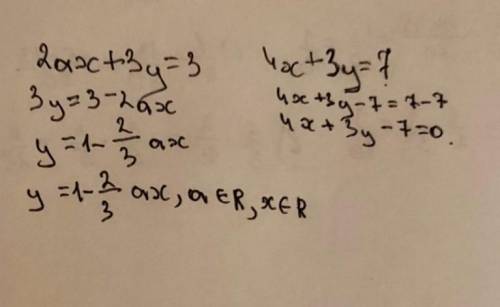 2ax+3y=3
3y=3-2ax
y=1-2/3 ax
y=1-2/3 ax, a∈R, x∈R
4x+3y=7
4x+3y-7=7-7
4x+3y-7=0.